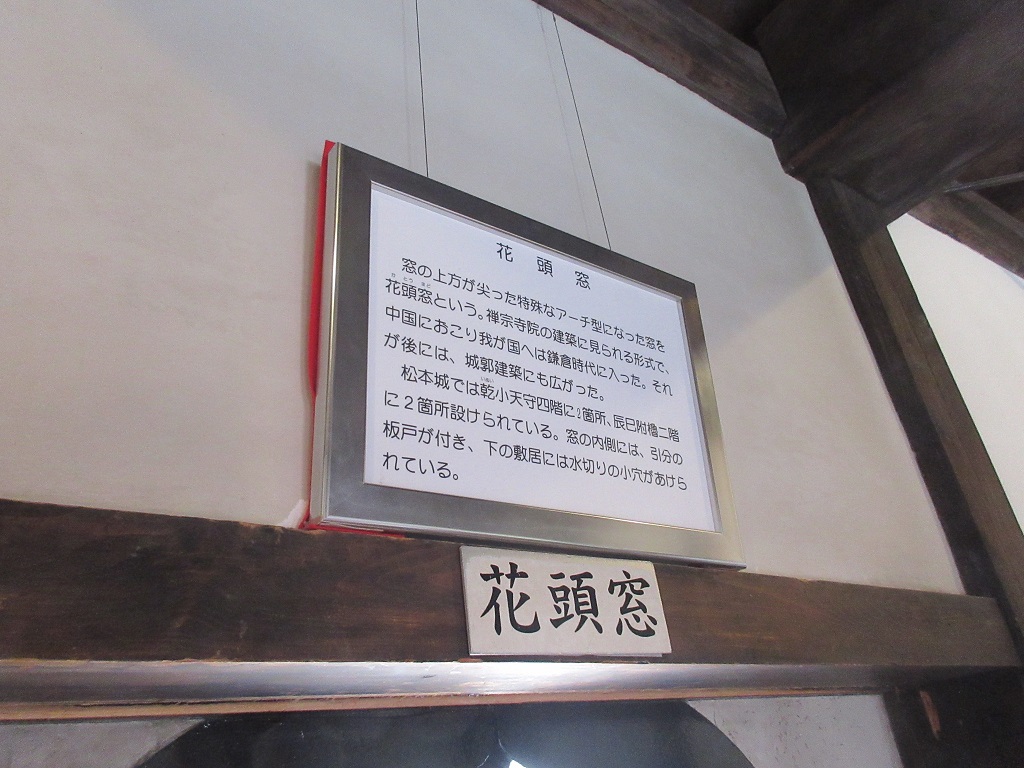 花頭窓
窓の上方が尖った特殊なアーチ型になった窓を
花頭窓という。禅宗寺院の建築に見られる形式で、
中国におこり我が国へは鎌倉時代に入った。それ
が後には、城郭建築にも広がった。
松本城では乾小天守四階に2箇所、辰巳附櫓二階
に2箇所設けられている。窓の内側には、引分の
板戸が付き、下の敷居には水切りの小穴があけら
れている。
花頭窓